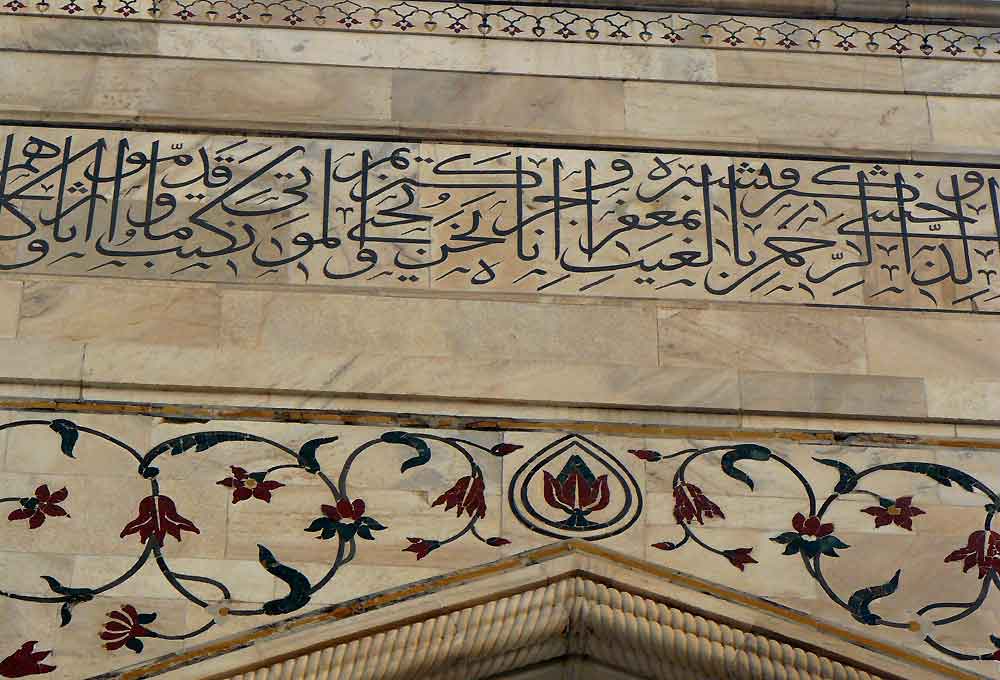 الذكر وخشي الرحمن بالغيب فبشره بمغفرة وأجر كريم إنا نحن نحيي الموتى ونكتب ما قدّموا وآثارهم وكل